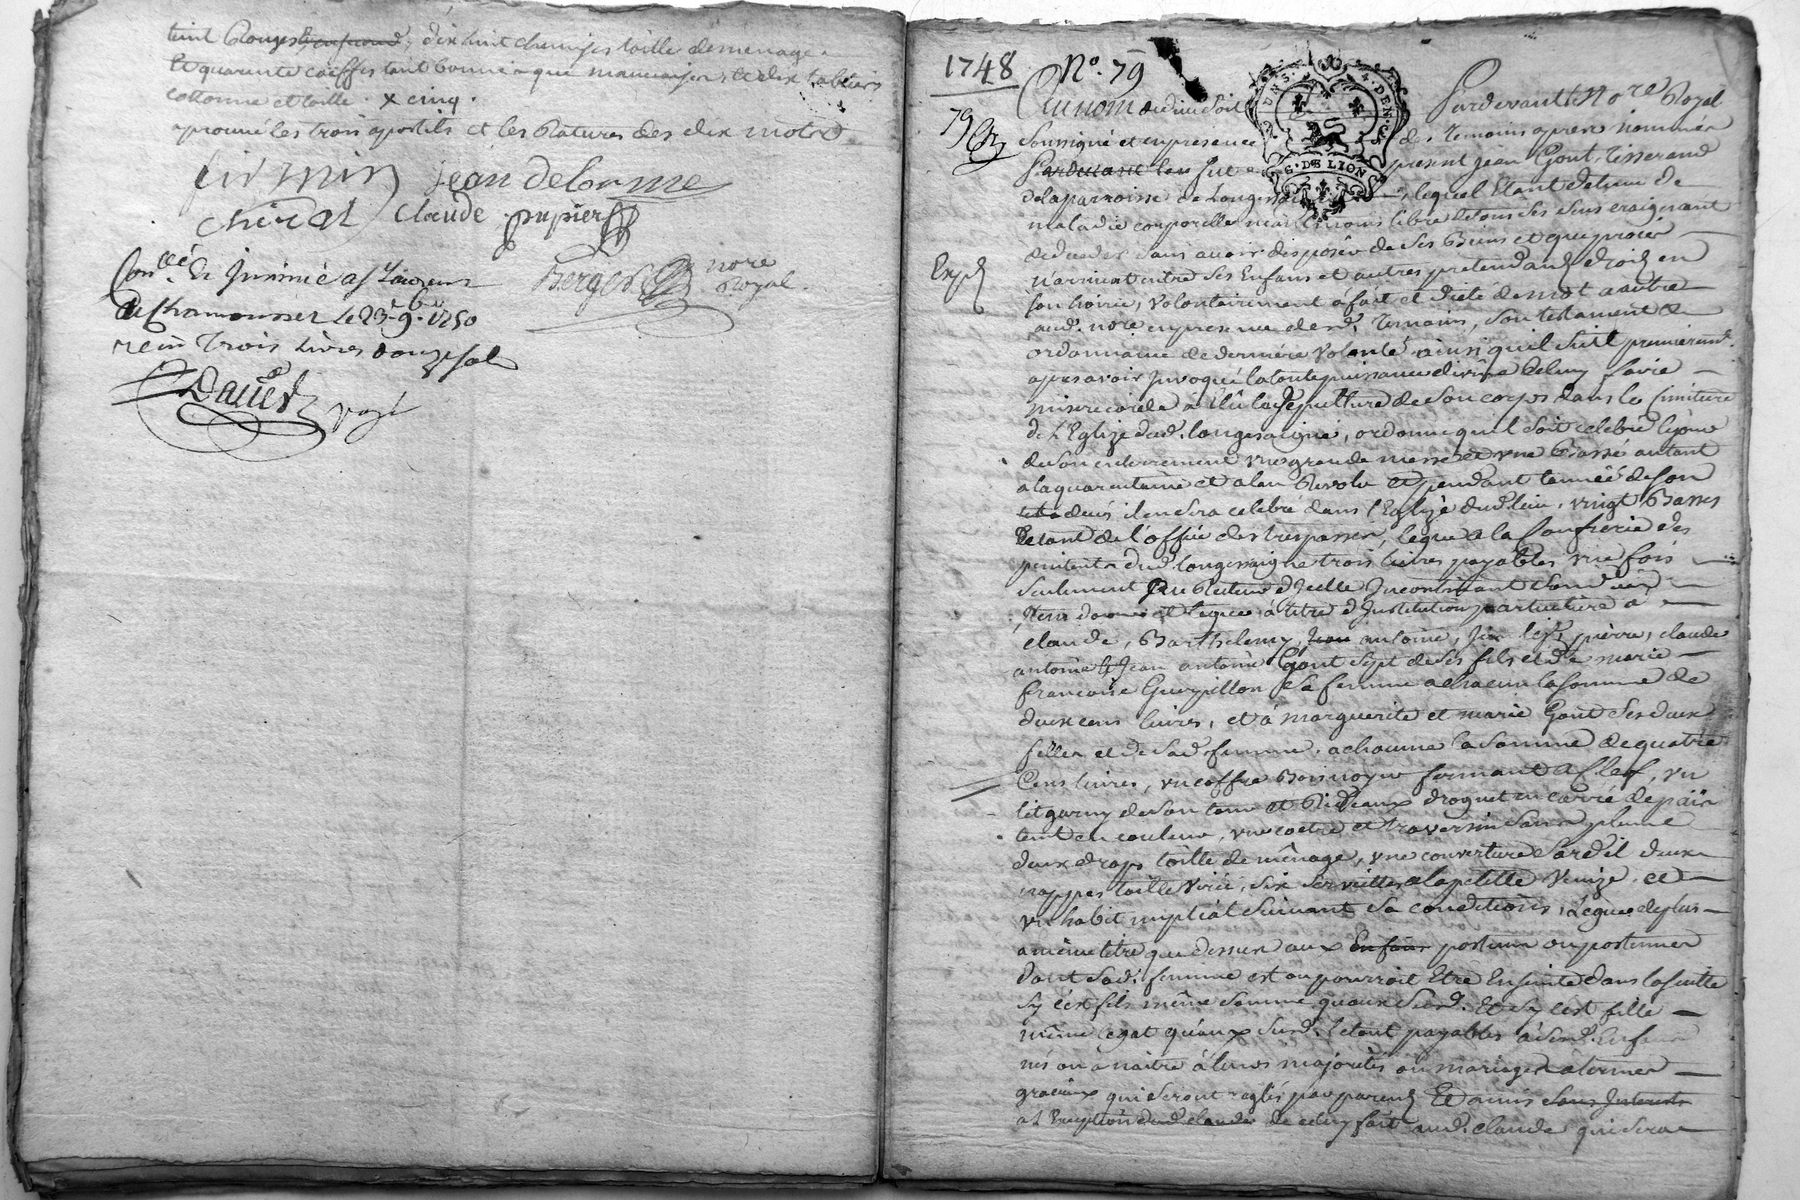 teint Rouge, dix huit chemises toille de menage
Et quarente coeffes tant bonnes que mauvaises, et dix tabliers
cottonne et toille. x cinq.
aprouvé les trois apostils et les Ratures des dix mots
jean delorme
Claude pupier
Conllé. & Insinué a St Laurens
de Chamousset le 23e 9bre 1750
reçu Trois Livres douze sols
Berger nore
Royal
1748 No. 79
79
G. DE LION
Expé
Au nom de dieu soit Pardevant le Nore Royal
soussigné et en presence des temoins apres nommés
fut present jean Gont, Tisserand
de la parroisse de Longessaigne, lequel Etant detenu de
maladie corporelle neanmoins libre de tous ses sens craignant
de deceder sans avoir disposé de ses Biens et que procès
n'arrivat entre ses Enfans et autres pretendans droits en
son hoirie, volontairement a fait et dicté de mot a autre
aud. nore en presence desd. Temoins, son testament &
ordonnance de derniere volonté ainsi qu'il suit premierement
apres avoir invoqué la toute puissance divine
misericorde a élû la sepulture de son corps dans le simitiere
de l'Eglize dud. longesaigne, ordonne qu'il soit celebré le jour
de son enterrement une grande messe et une Basse autant
a la quarentaine et a l'an Revolu et pendant l'année de son
deces il en sera celebré dans l'Eglize dud. lieu, vingt Basses
le tout de l'office des trespassés, legue a la Confrerie des
penitents dud. longessaigne trois livres payables une fois
seulement au Recteur d'icelle incontinant son deces
Item donne et legue a titre d'Institution particuliere a
claude, Barthelemy, antoine, pierre, claude
antoine & Jean antoine Gont sept de ses fils et de marie
francoise Guerpillon sa femme a chacun la somme de
deux cens livres, et à marguerite et marie Gont ses deux
filles et de sad. femme, a chacune la somme de quatre
Cens livres, un coffre Bois noyer fermant a clef, un
lit garny de son tour et Rideaux droguet en carré de païs
teint en couleur, une coetre et traversin sans plume
deux draps toille de ménage, une couverture deux
nappes toille, six serviettes a la petitte Venize, et
un habit nuptial suivant sa conditions, Legue de plus
a même titre que dessus aux Enfans postume ou postumes
dont sad. femme est ou pourroit Etre Enceinte dans la suitte
sy c'est fils même somme qu'aux susd. Et sy c'est fille
même legat qu'aux susd. le tout payables a sesd. Enfans
nés ou à naitre à leurs majorités ou mariages a termes
gracieux qui seront reglés par parents Et amis sans Interests
a l'exception dud. claude de celuy fait aud. claude qui sera